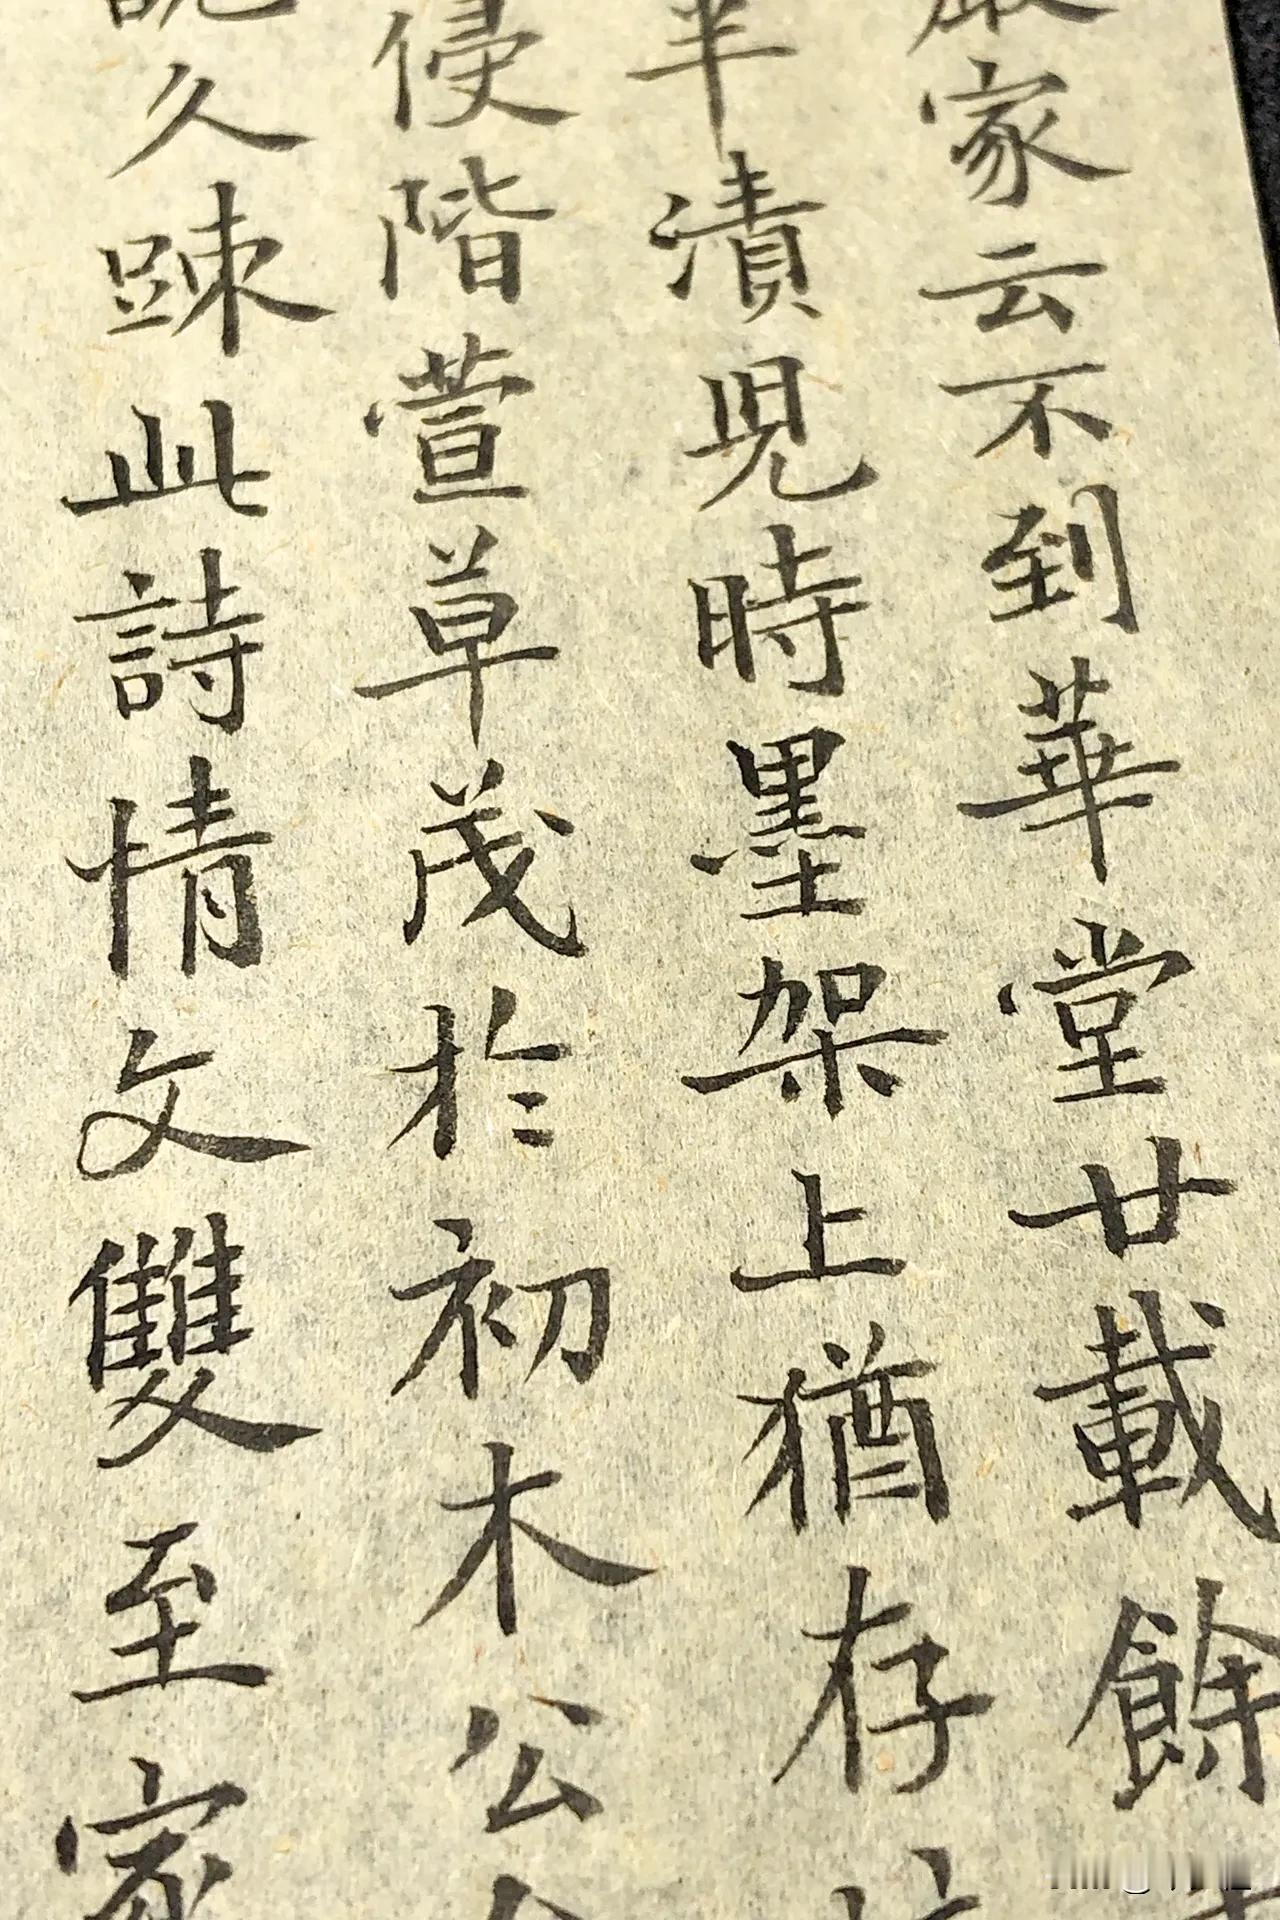 家云不到華堂廿載餘
半漬兒時墨架上猶存
侵階萱草茂於初木公
久踈此詩情文雙至家